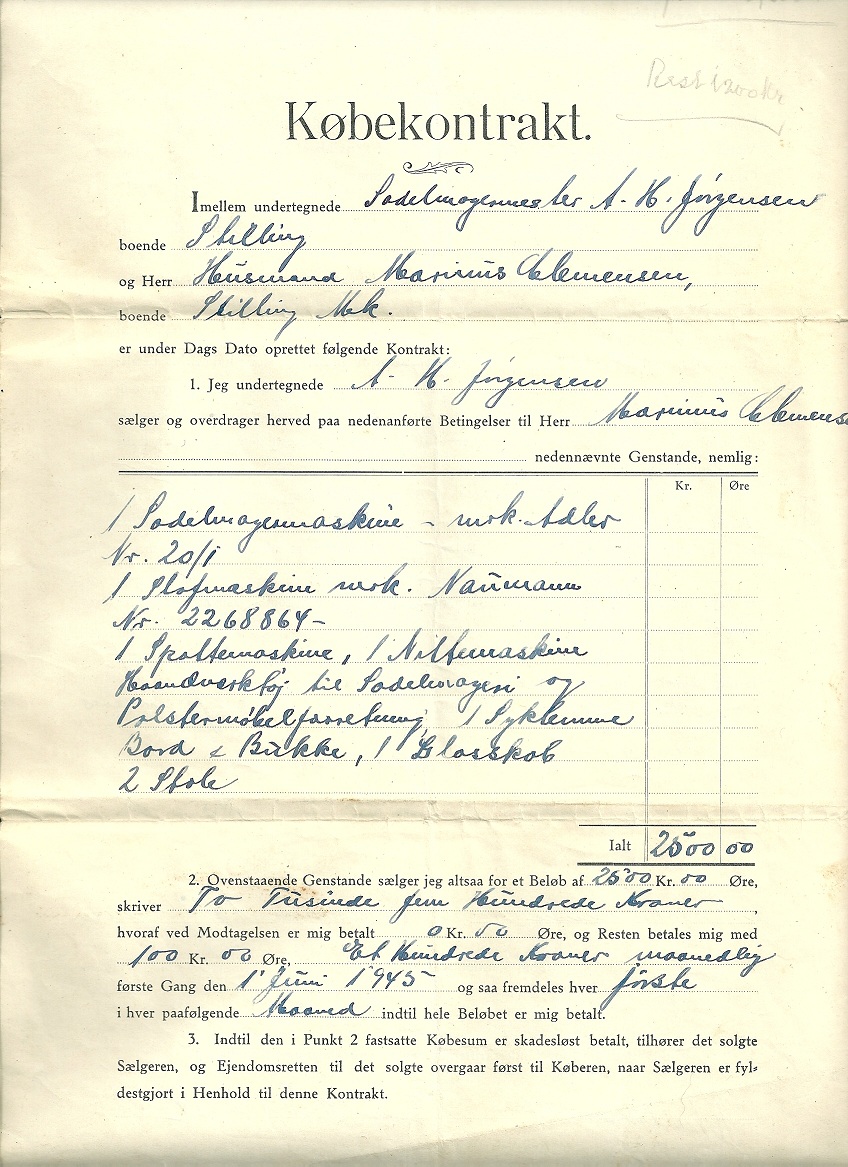 Rest 1200 Kr
Købekontrakt.
Imellem undertegnede Sadelmagermester A. H. Jörgensen
boende Stilling
og Herr Husmand Marinus Clemensen,
boende Stilling Mk.
er under Dags Dato oprettet følgende Kontrakt:
1. Jeg undertegnede A. H. Jörgensen
sælger og overdrager herved paa nedenanførte Betingelser til Herr Marinus Clemens
nedennævnte Genstande, nemlig:
Kr. Øre
1 Sadelmagermaskine – mrk. Adler
Nr. 20/1
1 Stofmaskine mrk. Naumann
Nr. 2268864–
1 Spaltemaskine, 1 Nittemaskine
Haandværktøj til Sadelmageri og
Polstermöbelforretning, 1 Syklemme
Bord & Bukke, 1 Glasskab
2 Stole
Ialt 2500 00
2. Ovenstaaende Genstande sælger jeg altsaa for et Beløb af 2500 Kr. 00 Øre,
skriver To Tusinde fem Hundrede Kroner,
hvoraf ved Modtagelsen er mig betalt 0 Kr. 00 Øre, og Resten betales mig med
100 Kr. 00 Øre, Et Hundrede Kroner maanedlig
første Gang den 1' Juni 1945 og saa fremdeles hver förste
i hver paafølgende Maaned indtil hele Beløbet er mig betalt.
3. Indtil den i Punkt 2 fastsatte Købesum er skadesløst betalt, tilhører det solgte
Sælgeren, og Ejendomsretten til det solgte overgaar først til Køberen, naar Sælgeren er fyl-
destgjort i Henhold til denne Kontrakt.